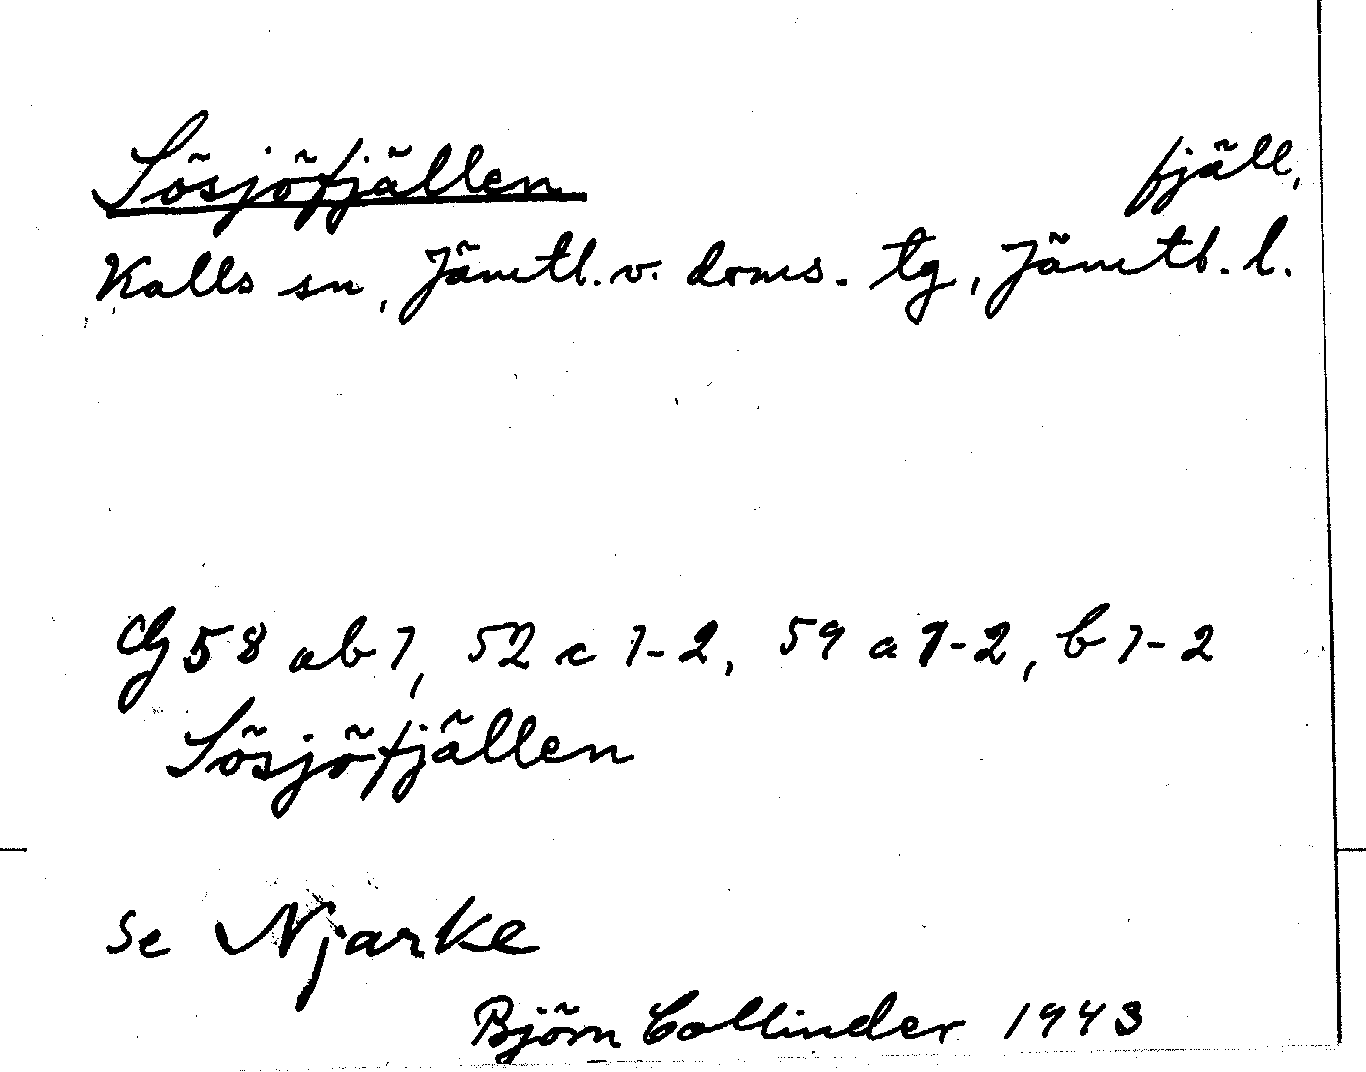 Sösjöfjällen fjäll,
Kalls sn, Jämtl. v. doms. tg, Jämtl. l.
Gg 58 ab 1, 52 c 1-2, 59 a 1-2, b 1-2
Sösjöfjällen
se Njarke
Björn Collinder 1943